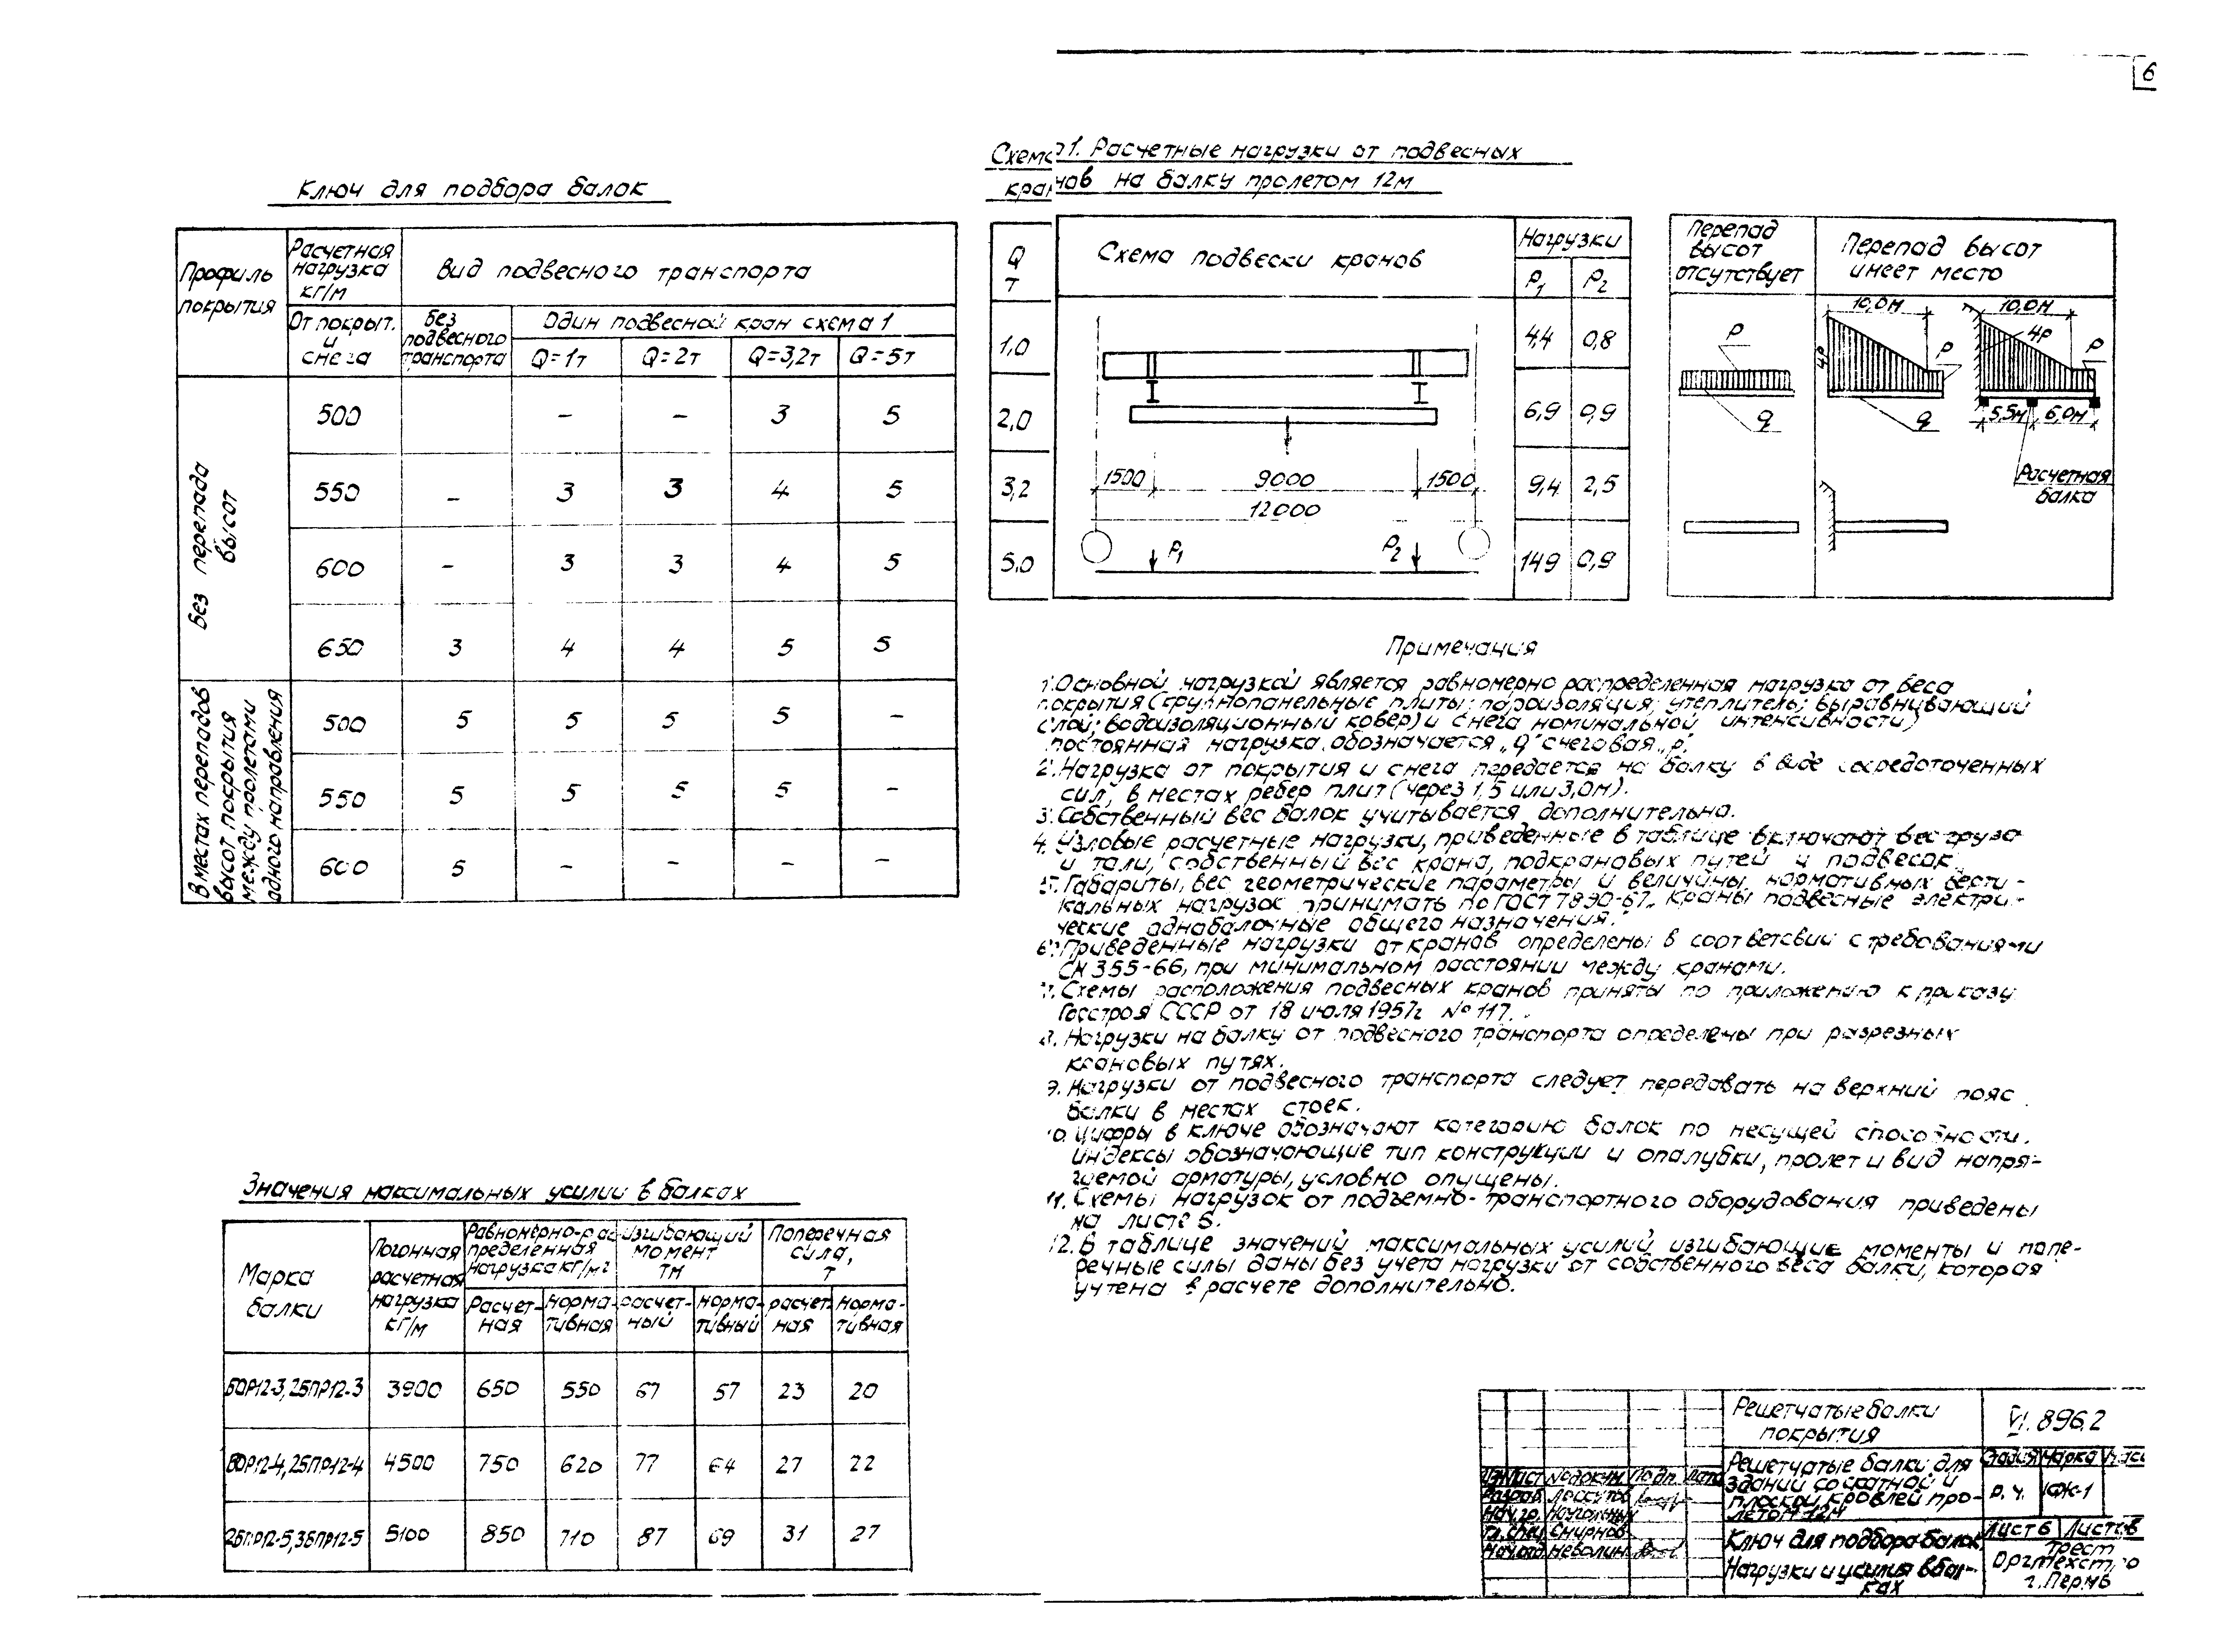 6
Ключ для подбора балок
Профиль покрытия
Расчетная нагрузка кг/м
Вид подвесного транспорта
От покрыт. и снега
без подвесного транспорта
Один подвесной кран схема 1
Q=1т Q=2т Q=3,2т Q=5т
Без перепада высот
500 – – 3 5
550 – 3 3 4 5
600 – 3 3 4 5
650 3 4 4 5 5
В местах перепадов высот покрытия между пролетами одного направления
500 5 5 5 5 –
550 5 5 5 5 –
600 5 – – – –
Схема 1. Расчетные нагрузки от подвесных
кранов на балку пролетом 12м
Q т
Схема подвески кранов
Нагрузки
P1 P2
1,0 4,4 0,8
2,0 6,9 0,9
3,2 9,4 2,5
5,0 149 0,9
1500 9000 1500
12000
P1 P2
Перепад высот отсутствует
Перепад высот имеет место
10,0м 10,0м
P 4P P 4P P
q q
5,5м 6,0м
Расчетная балка
Примечания
1. Основной нагрузкой является равномерно распределенная нагрузка от веса
покрытия (крупнопанельные плиты; пароизоляция; утеплитель; выравнивающий
слой; водоизоляционный ковер) и снега номинальной интенсивности)
постоянная нагрузка обозначается „q" снеговая „р".
2. Нагрузка от покрытия и снега передается на балку в виде сосредоточенных
сил, в местах ребер плит (через 1,5 или 3,0м).
3. Собственный вес балок учитывается дополнительно.
4. Узловые расчетные нагрузки, приведенные в таблице включают вес груза
и тали, собственный вес крана, подкрановых путей и подвесок.
5. Габариты, вес, геометрические параметры и величины нормативных верти-
кальных нагрузок принимать по ГОСТ 7890-67 „Краны подвесные электри-
ческие однобалочные общего назначения."
6. Приведенные нагрузки от кранов определены в соответсвии с требованиями
СН 355-66, при минимальном расстоянии между кранами.
7. Схемы расположения подвесных кранов приняты по приложению к приказу
Госстроя СССР от 18 июля 1957г № 117.
8. Нагрузки на балку от подвесного транспорта определены при разрезных
крановых путях.
9. Нагрузки от подвесного транспорта следует передавать на верхний пояс
балки в местах стоек.
10. Цифры в ключе обозначают категорию балок по несущей способности.
Индексы обозначающие тип конструкции и опалубки, пролет и вид напря-
гаемой арматуры, условно опущены.
11. Схемы нагрузок от подъемно-транспортного оборудования приведены
на листе 5.
12. В таблице значений максимальных усилий изгибающие моменты и попе-
речные силы даны без учета нагрузки от собственного веса балки, которая
учтена в расчете дополнительно.
Значения максимальных усилий в балках
Марка балки
Погонная расчетная нагрузка кг/м
Равномерно-распределенная нагрузка кг/м2
Изгибающий момент тм
Поперечная сила, т
Расчетная Нормативная расчетный нормативный расчетная нормативная
БДР12-3, 2БПР12-3 3900 650 550 67 57 23 20
БДР12-4, 2БПР12-4 4500 750 620 77 64 27 22
2БПР12-5, 3БПР12-5 5100 850 710 87 69 31 27
Решетчатые балки
покрытия
VI. 896.2
Решетчатые балки для
зданий со скатной и
плоской кровлей про-
летом 12м
Стадия Марка
Р.Ч. КЖ-1
Лист 6 Листов
Изм Лист № докум. Подп. Дата
Разраб.
Нач.гр.
Гл.спец. Смирнов
Нач.отд. Неволин
Ключ для подбора балок.
Нагрузки и усилия в бал-
ках
Трест
Оргтехстро
г. Пермь